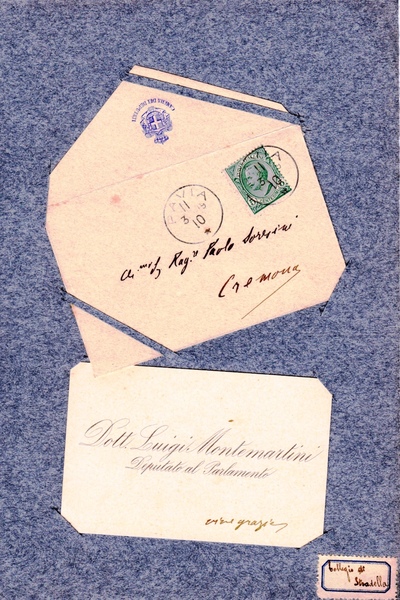 CAMERA DEI DEPUTATI
PAVIA
11
3
10
Rag.r Paolo Sorsini
Cremona
Dott. Luigi Montemartini
Deputato al Parlamento
vive grazie
Collegio di
Stradella